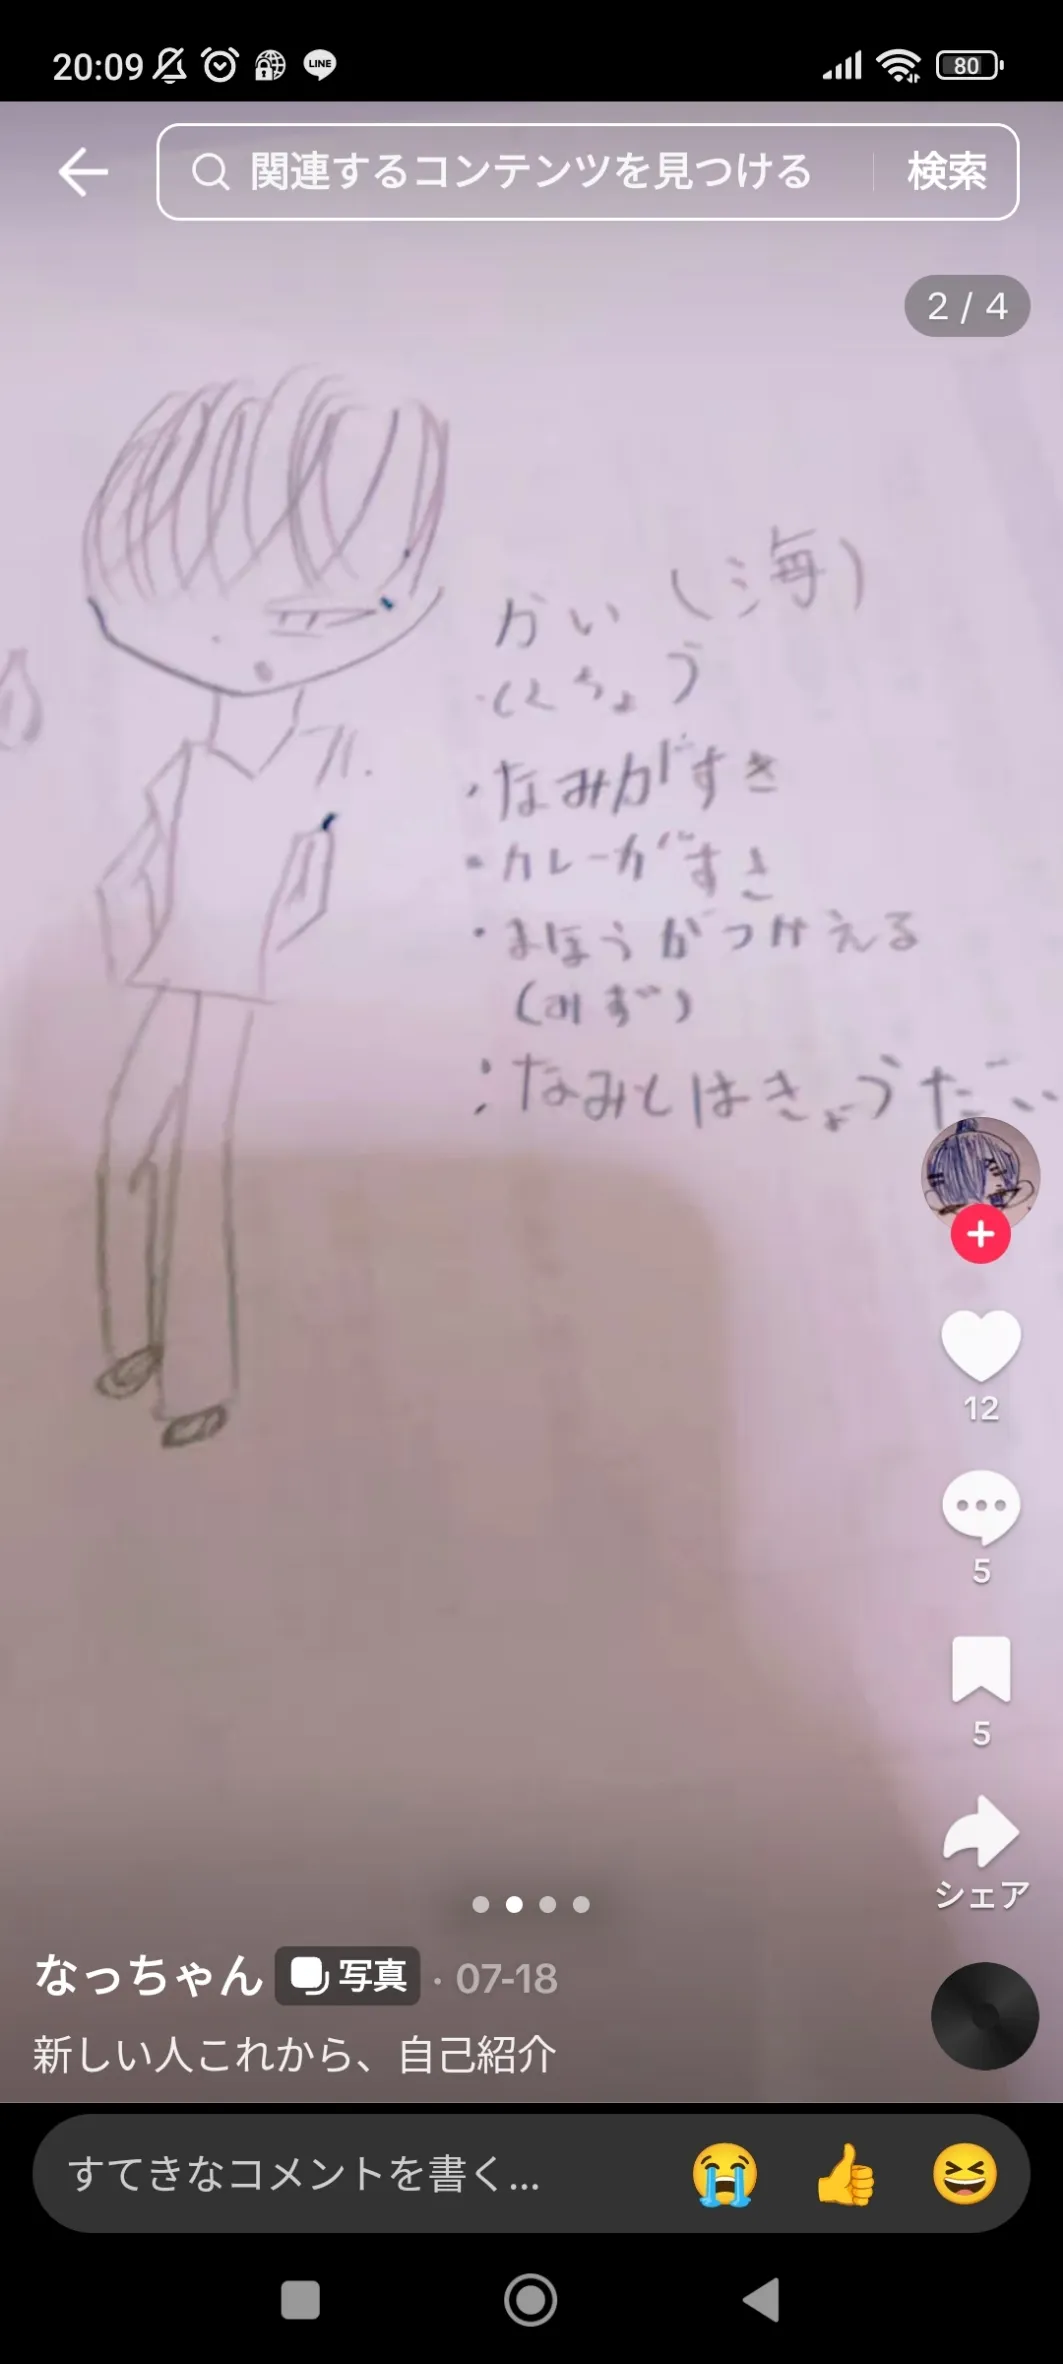 20:09 LINE 80
関連するコンテンツを見つける 検索
2 / 4
かい (海)
・くちょう
・なみがすき
・カレーがすき
・まほうがつかえる
(みず)
:なみとはきょうだい
12
5
5
シェア
なっちゃん 写真 · 07-18
新しい人これから、自己紹介
すてきなコメントを書く...